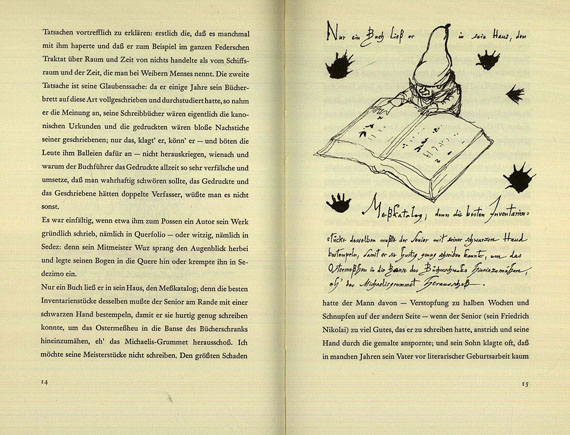 Tatsachen vortrefflich zu erklären: erstlich die, daß es manchmal
mit ihm haperte und daß er zum Beispiel im ganzen Federschen
Traktat über Raum und Zeit von nichts handelte als vom Schiffs-
raum und der Zeit, die man bei Weibern Menses nennt. Die zweite
Tatsache ist seine Glaubenssache: da er einige Jahre sein Bücher-
brett auf diese Art vollgeschrieben und durchstudiert hatte, so nahm
er die Meinung an, seine Schreibbücher wären eigentlich die kano-
nischen Urkunden und die gedruckten wären bloße Nachstiche
seiner geschriebenen; nur das, klagt' er, könn' er — und böten die
Leute ihm Balleien dafür an — nicht herauskriegen, wienach und
warum der Buchführer das Gedruckte allzeit so sehr verfälsche und
umsetze, daß man wahrhaftig schwören sollte, das Gedruckte und
das Geschriebene hätten doppelte Verfasser, wüßte man es nicht
sonst.
Es war einfältig, wenn etwa ihm zum Possen ein Autor sein Werk
gründlich schrieb, nämlich in Querfolio – oder witzig, nämlich in
Sedez: denn sein Mitmeister Wuz sprang den Augenblick herbei
und legte seinen Bogen in die Quere hin oder krempte ihn in Se-
dezimo ein.
Nur ein Buch ließ er in sein Haus, den Meßkatalog; denn die besten
Inventarienstücke desselben mußte der Senior am Rande mit einer
schwarzen Hand bestempeln, damit er sie hurtig genug schreiben
konnte, um das Ostermeßheu in die Banse des Bücherschranks
hineinzumähen, eh' das Michaelis-Grummet herausschoß. Ich
möchte seine Meisterstücke nicht schreiben. Den größten Schaden
14
Nur ein Buch ließ er in sein Haus, den
Meßkatalog; denn die besten Inventarien-
stücke desselben mußte der Senior mit einer schwarzen Hand
bestempeln, damit er sie hurtig genug schreiben konnte, um das
Ostermeßheu in die Banse des Bücherschranks hineinzumähen,
eh' das Michaelisgrummet herausschoß.
hatte der Mann davon — Verstopfung zu halben Wochen und
Schnupfen auf der andern Seite — wenn der Senior (sein Friedrich
Nikolai) zu viel Gutes, das er zu schreiben hatte, anstrich und seine
Hand durch die gemalte anspornte; und sein Sohn klagte oft, daß
in manchen Jahren sein Vater vor literarischer Geburtsarbeit kaum
15